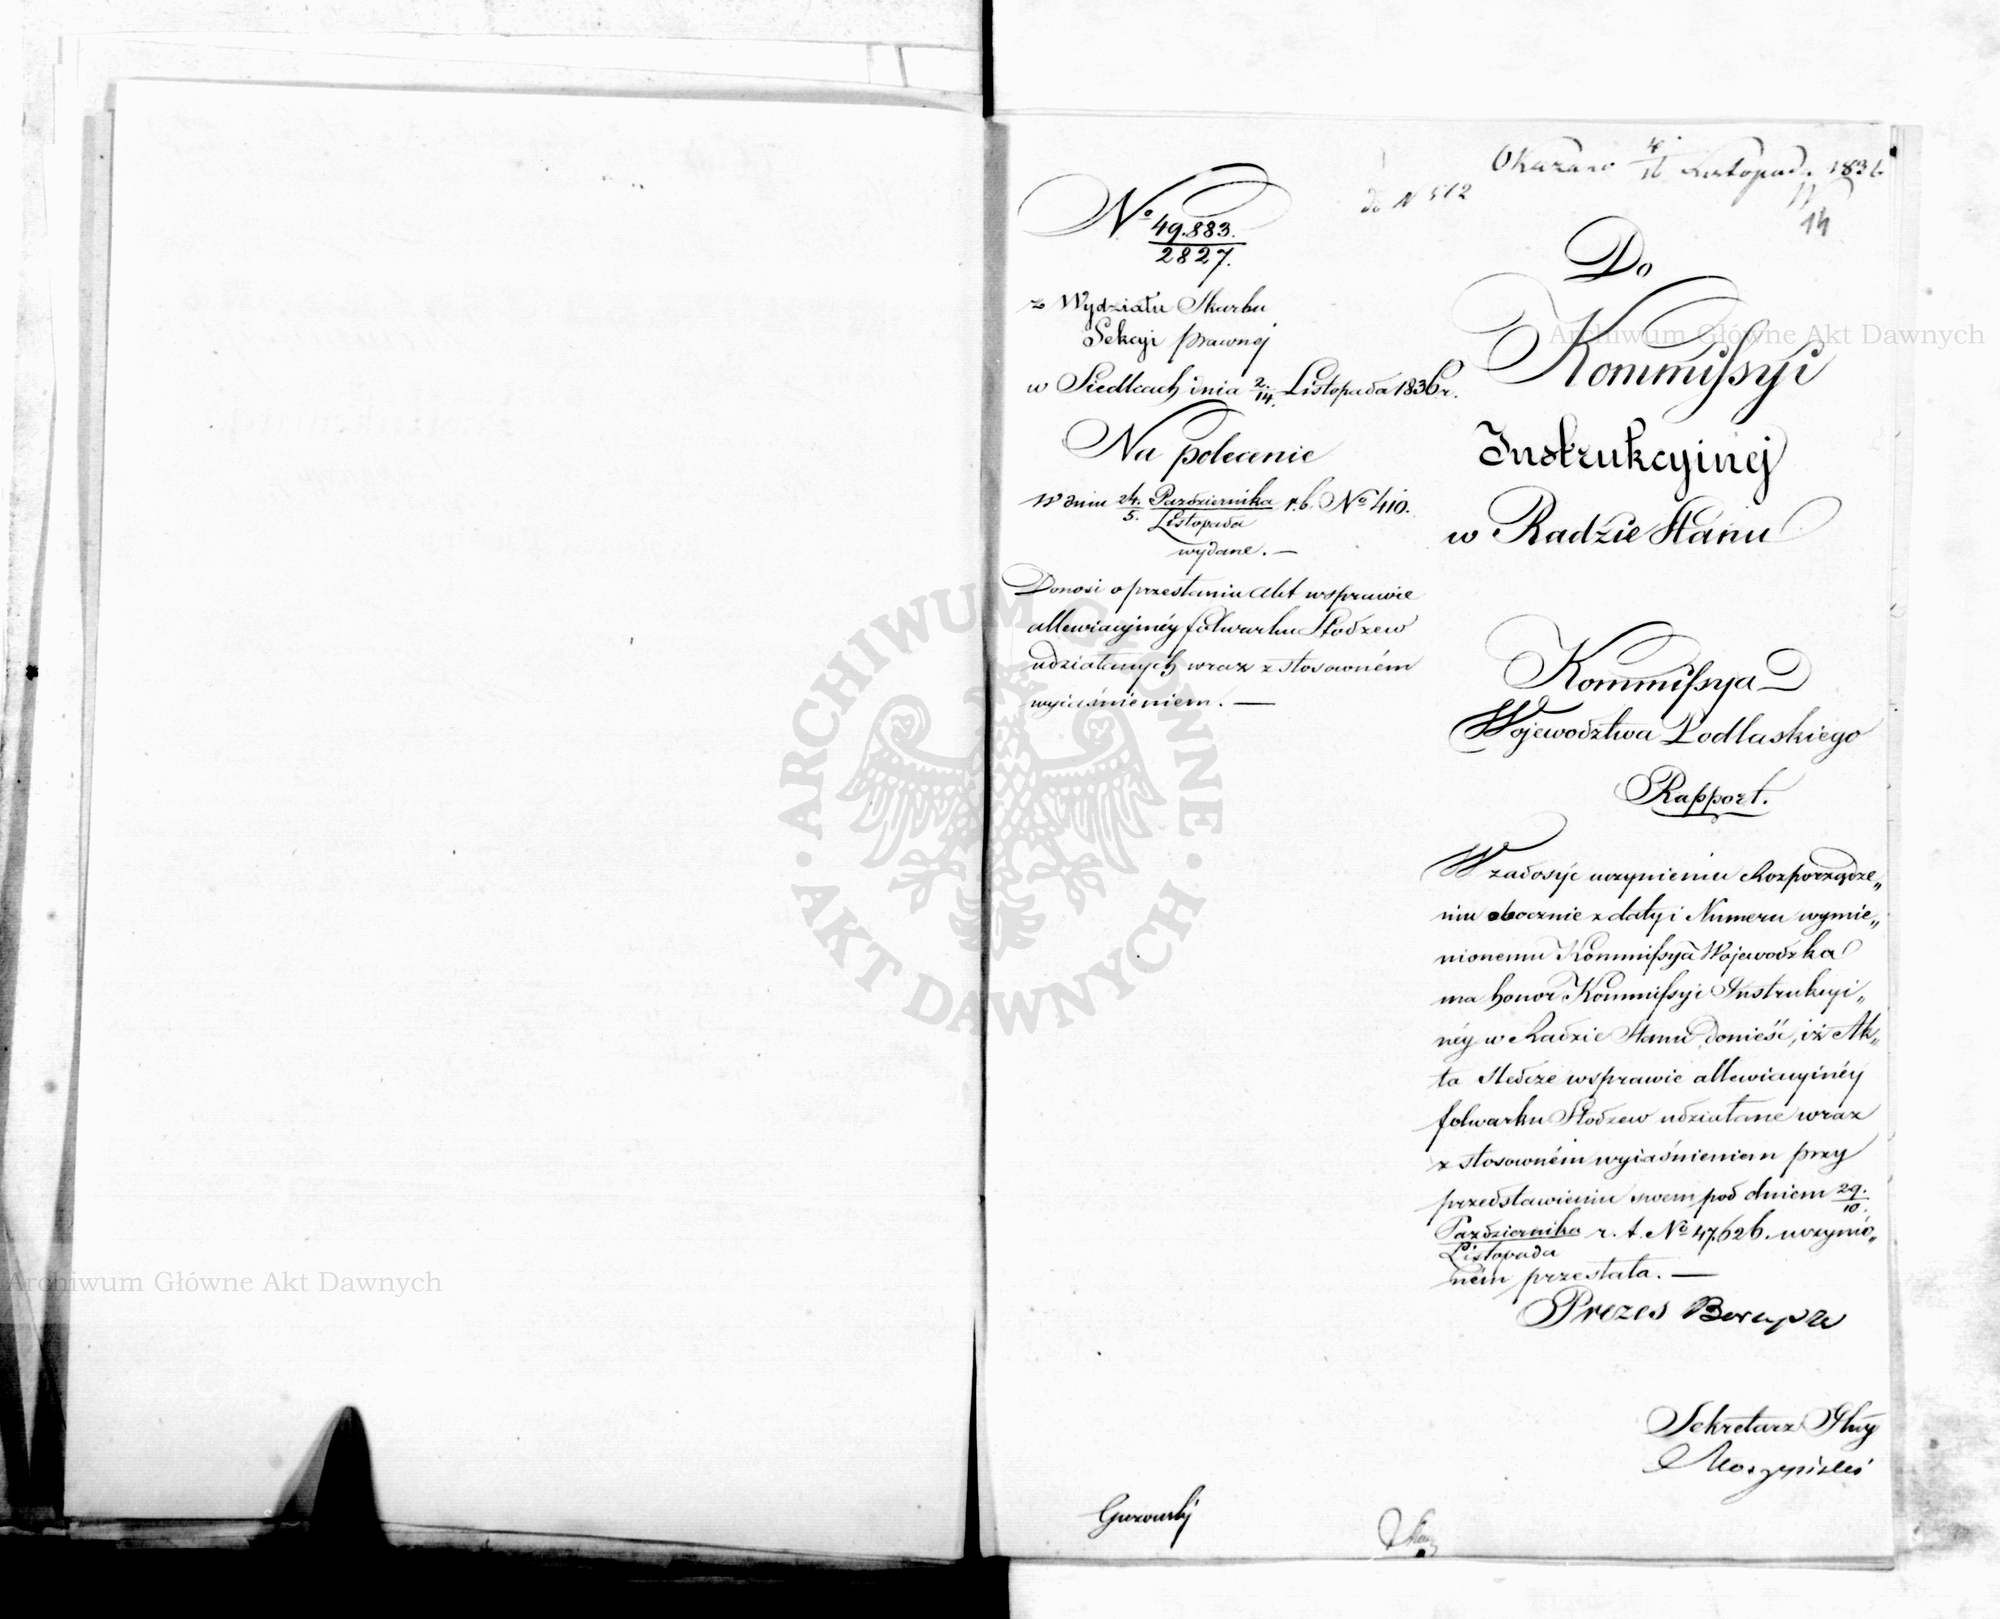 4/16 Listopada 1836
do N 512
14
No 49.883./2827.
z Wydziału Skarbu
Sekcyi prawnej
w Siedlcach dnia 2./14. Listopada 1836 r.
Na polecenie
W dniu 24./5. Października/Listopada r. b. No 410.
wydane. —
Donosi o przesłaniu Akt w sprawie
allewiacyjnéy folwarku Stodzew
udziałanych wraz z stosowném
wyiaśnieniem. —
Do
Kommissyi
Instrukcyinej
w Radzie Stanu
Kommissya
Województwa Podlaskiego
Rapport.
W zadosyć uczynieniu Rozporządze„
niu obocznie z daty i Numeru wymie„
nionemu Kommissya Wojewodzka
ma honor Kommissyi Instrukcyi„
néy w Radzie Stanu donieść, iż Ak„
ta Śledcze w sprawie allewiacyinéy
folwarku Stodzew udziałane wraz
z stosowném wyiaśnieniem przy
przedstawieniu swem pod dniem 29./10.
Października/Listopada r. t. No 47.626. uczynio„
ném przesłała. —
Prezes
Sekretarz Glny
Gurowski
Archiwum Główne Akt Dawnych
Archiwum Główne Akt Dawnych
· ARCHIWUM GŁÓWNE · AKT DAWNYCH